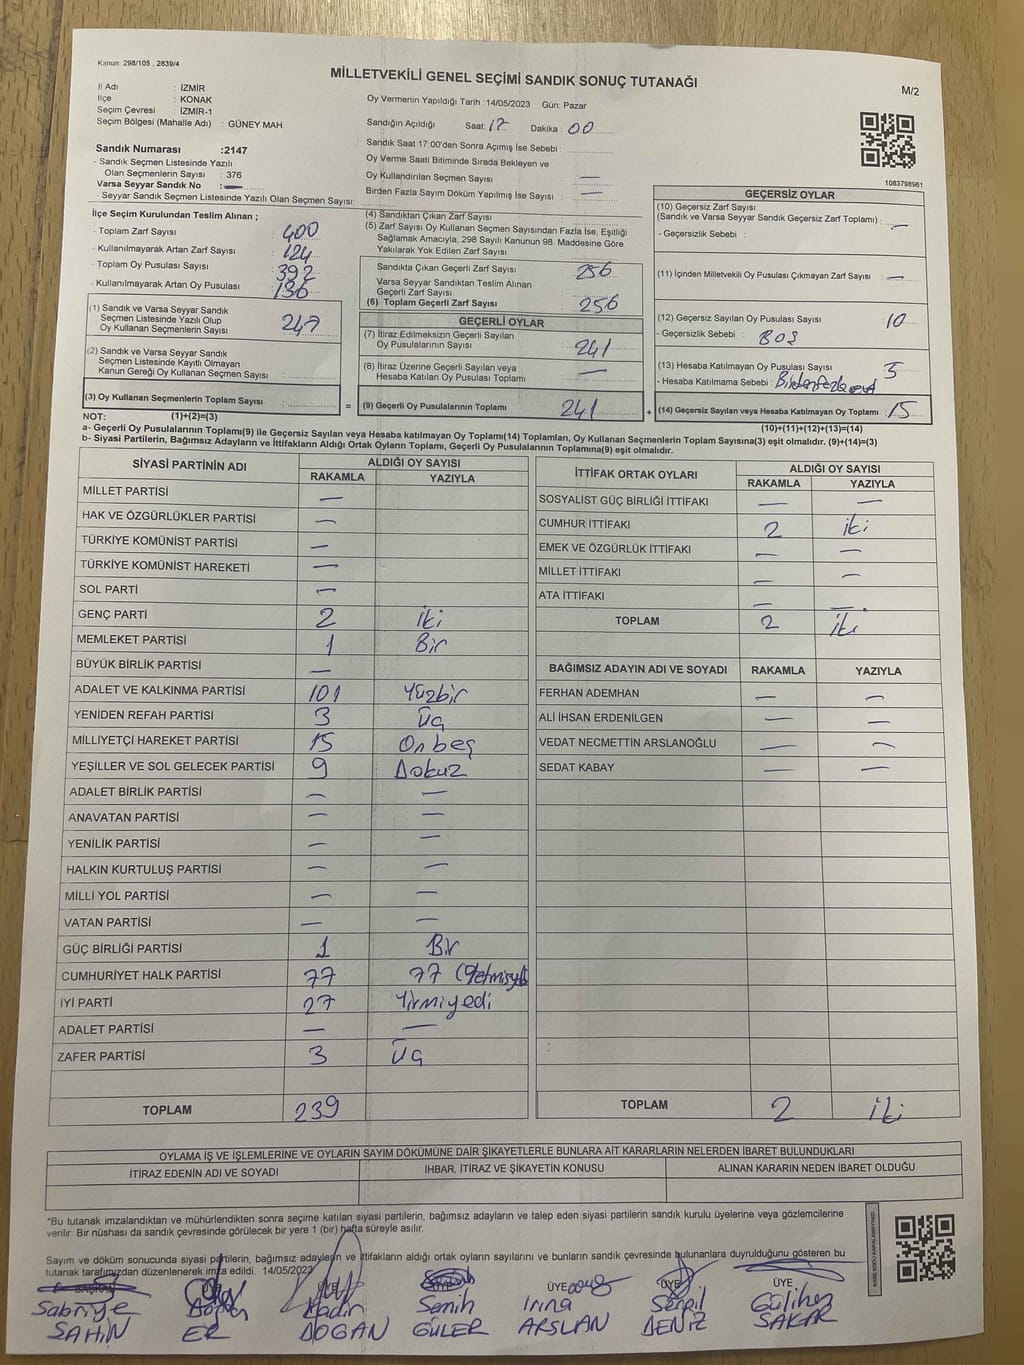 Kanun: 298/105 , 2839/4
MİLLETVEKİLİ GENEL SEÇİMİ SANDIK SONUÇ TUTANAĞI
M/2
İl Adı : İZMİR
İlçe : KONAK
Seçim Çevresi : İZMİR-1
Seçim Bölgesi (Mahalle Adı) : GÜNEY MAH.
Sandık Numarası :2147
- Sandık Seçmen Listesinde Yazılı
Olan Seçmenlerin Sayısı : 376
Varsa Seyyar Sandık No : —
- Seyyar Sandık Seçmen Listesinde Yazılı Olan Seçmen Sayısı:
Oy Vermenin Yapıldığı Tarih :14/05/2023 Gün: Pazar
Sandığın Açıldığı Saat: 17 Dakika : 00
Sandık Saat 17:00'den Sonra Açımış İse Sebebi :
Oy Verme Saati Bitiminde Sırada Bekleyen ve
Oy Kullandırılan Seçmen Sayısı : —
Birden Fazla Sayım Döküm Yapılmış İse Sayısı : —
1083798961
İlçe Seçim Kurulundan Teslim Alınan ;
- Toplam Zarf Sayısı : 400
- Kullanılmayarak Artan Zarf Sayısı : 124
- Toplam Oy Pusulası Sayısı : 392
- Kullanılmayarak Artan Oy Pusulası : 136
(1) Sandık ve Varsa Seyyar Sandık
Seçmen Listesinde Yazılı Olup
Oy Kullanan Seçmenlerin Sayısı : 247
(2) Sandık ve Varsa Seyyar Sandık
Seçmen Listesinde Kayıtlı Olmayan
Kanun Gereği Oy Kullanan Seçmen Sayısı :
(3) Oy Kullanan Seçmenlerin Toplam Sayısı :
(4) Sandıktan Çıkan Zarf Sayısı :
(5) Zarf Sayısı Oy Kullanan Seçmen Sayısından Fazla İse, Eşitliği
Sağlamak Amacıyla; 298 Sayılı Kanunun 98. Maddesine Göre
Yakılarak Yok Edilen Zarf Sayısı :
Sandıkta Çıkan Geçerli Zarf Sayısı : 256
Varsa Seyyar Sandıktan Teslim Alınan
Geçerli Zarf Sayısı :
(6) Toplam Geçerli Zarf Sayısı : 256
GEÇERLİ OYLAR
(7) İtiraz Edilmeksizin Geçerli Sayılan
Oy Pusulalarının Sayısı : 241
(8) İtiraz Üzerine Geçerli Sayılan veya
Hesaba Katılan Oy Pusulası Toplamı : —
= (9) Geçerli Oy Pusulalarının Toplamı : 241 +
GEÇERSİZ OYLAR
(10) Geçersiz Zarf Sayısı
(Sandık ve Varsa Seyyar Sandık Geçersiz Zarf Toplamı) : —
- Geçersizlik Sebebi :
(11) İçinden Milletvekili Oy Pusulası Çıkmayan Zarf Sayısı : —
(12) Geçersiz Sayılan Oy Pusulası Sayısı : 10
- Geçersizlik Sebebi : BOŞ
(13) Hesaba Katılmayan Oy Pusulası Sayısı : 5
- Hesaba Katılmama Sebebi :
(14) Geçersiz Sayılan veya Hesaba Katılmayan Oy Toplamı : 15
NOT: (1)+(2)=(3)
(10)+(11)+(12)+(13)=(14)
a- Geçerli Oy Pusulalarının Toplamı(9) ile Geçersiz Sayılan veya Hesaba katılmayan Oy Toplamı(14) Toplamları, Oy Kullanan Seçmenlerin Toplam Sayısına(3) eşit olmalıdır. (9)+(14)=(3)
b- Siyasi Partilerin, Bağımsız Adayların ve İttifakların Aldığı Ortak Oyların Toplamı, Geçerli Oy Pusulalarının Toplamına(9) eşit olmalıdır.
SİYASİ PARTİNİN ADI ALDIĞI OY SAYISI
RAKAMLA YAZIYLA
MİLLET PARTİSİ —
HAK VE ÖZGÜRLÜKLER PARTİSİ —
TÜRKİYE KOMÜNİST PARTİSİ —
TÜRKİYE KOMÜNİST HAREKETİ —
SOL PARTİ —
GENÇ PARTİ 2 iki
MEMLEKET PARTİSİ 1 Bir
BÜYÜK BİRLİK PARTİSİ —
ADALET VE KALKINMA PARTİSİ 101 Yüzbir
YENİDEN REFAH PARTİSİ 3 Üç
MİLLİYETÇİ HAREKET PARTİSİ 15 Onbeş
YEŞİLLER VE SOL GELECEK PARTİSİ 9 Dokuz
ADALET BİRLİK PARTİSİ — —
ANAVATAN PARTİSİ — —
YENİLİK PARTİSİ — —
HALKIN KURTULUŞ PARTİSİ — —
MİLLİ YOL PARTİSİ — —
VATAN PARTİSİ — —
GÜÇ BİRLİĞİ PARTİSİ 1 Bir
CUMHURİYET HALK PARTİSİ 77 77
İYİ PARTİ 27 Yirmiyedi
ADALET PARTİSİ — —
ZAFER PARTİSİ 3 Üç
TOPLAM 239
İTTİFAK ORTAK OYLARI ALDIĞI OY SAYISI
RAKAMLA YAZIYLA
SOSYALİST GÜÇ BİRLİĞİ İTTİFAKI — —
CUMHUR İTTİFAKI 2 iki
EMEK VE ÖZGÜRLÜK İTTİFAKI — —
MİLLET İTTİFAKI — —
ATA İTTİFAKI — —
TOPLAM 2 iki
BAĞIMSIZ ADAYIN ADI VE SOYADI RAKAMLA YAZIYLA
FERHAN ADEMHAN — —
ALİ İHSAN ERDENİLGEN — —
VEDAT NECMETTİN ARSLANOĞLU — —
SEDAT KABAY — —
TOPLAM 2 iki
OYLAMA İŞ VE İŞLEMLERİNE VE OYLARIN SAYIM DÖKÜMÜNE DAİR ŞİKAYETLERLE BUNLARA AİT KARARLARIN NELERDEN İBARET BULUNDUKLARI
İTİRAZ EDENİN ADI VE SOYADI İHBAR, İTİRAZ VE ŞİKAYETİN KONUSU ALINAN KARARIN NEDEN İBARET OLDUĞU
*Bu tutanak imzalandıktan ve mühürlendikten sonra seçime katılan siyasi partilerin, bağımsız adayların ve talep eden siyasi partilerin sandık kurulu üyelerine veya gözlemcilerine
verilir. Bir nüshası da sandık çevresinde görülecek bir yere 1 (bir) hafta süreyle asılır.
Sayım ve döküm sonucunda siyasi partilerin, bağımsız adayların ve ittifakların aldığı ortak oyların sayılarını ve bunların sandık çevresinde bulunanlara duyrulduğunu gösteren bu
tutanak tarafımızdan düzenlenerek imza edildi. 14/05/2023
BAŞKAN ÜYE ÜYE ÜYE ÜYE
Sabriye Kadir Semih Irına Serpil
ŞAHİN ER DOĞAN GÜLER ARSLAN DENİZ SAKAR